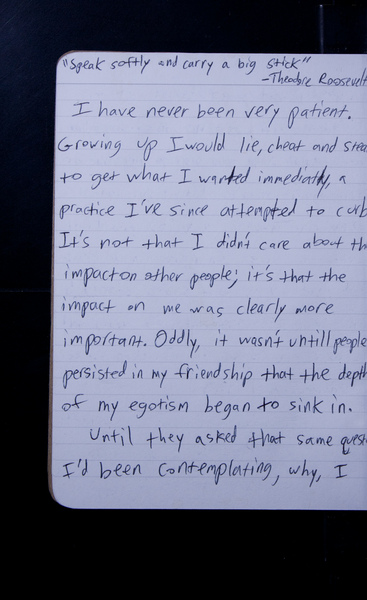 "Speak softly and carry a big stick"
-Theodore Roosevelt
I have never been very patient.
Growing up I would lie, cheat and stea
to get what I wanted immediatly, a
practice I've since attempted to curb
It's not that I didn't care about th
impact on other people; it's that the
impact on me was clearly more
important. Oddly, it wasn't untill people
persisted in my friendship that the depth
of my egotism began to sink in.
Until they asked that same quest
I'd been contemplating, why, I